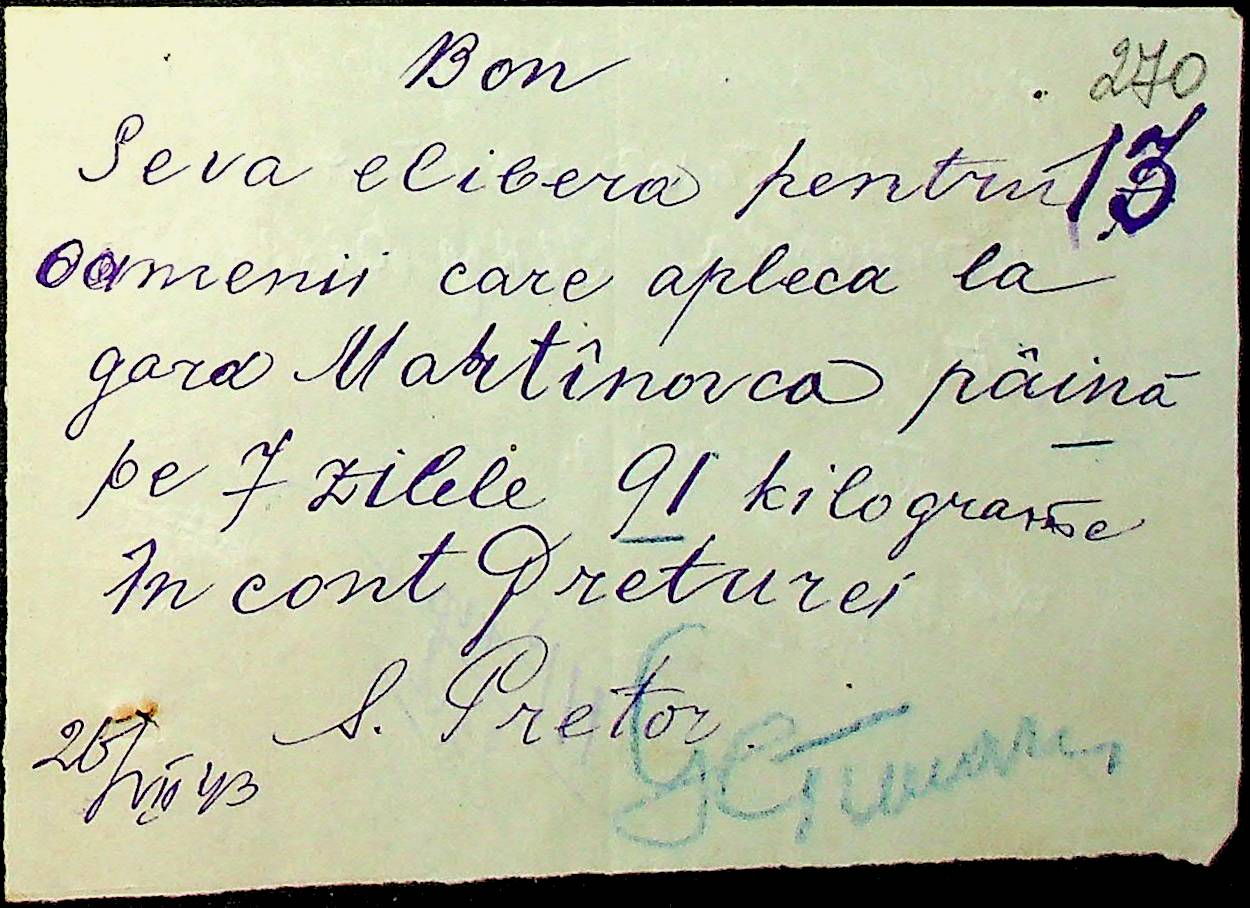 Bon
270
Se va elibera pentru 13
oamenii care apleca la
gara Martînovca pâină
pe 7 zilele 91 kilograme
în cont Preturei
S. Pretor.
26/VII 43